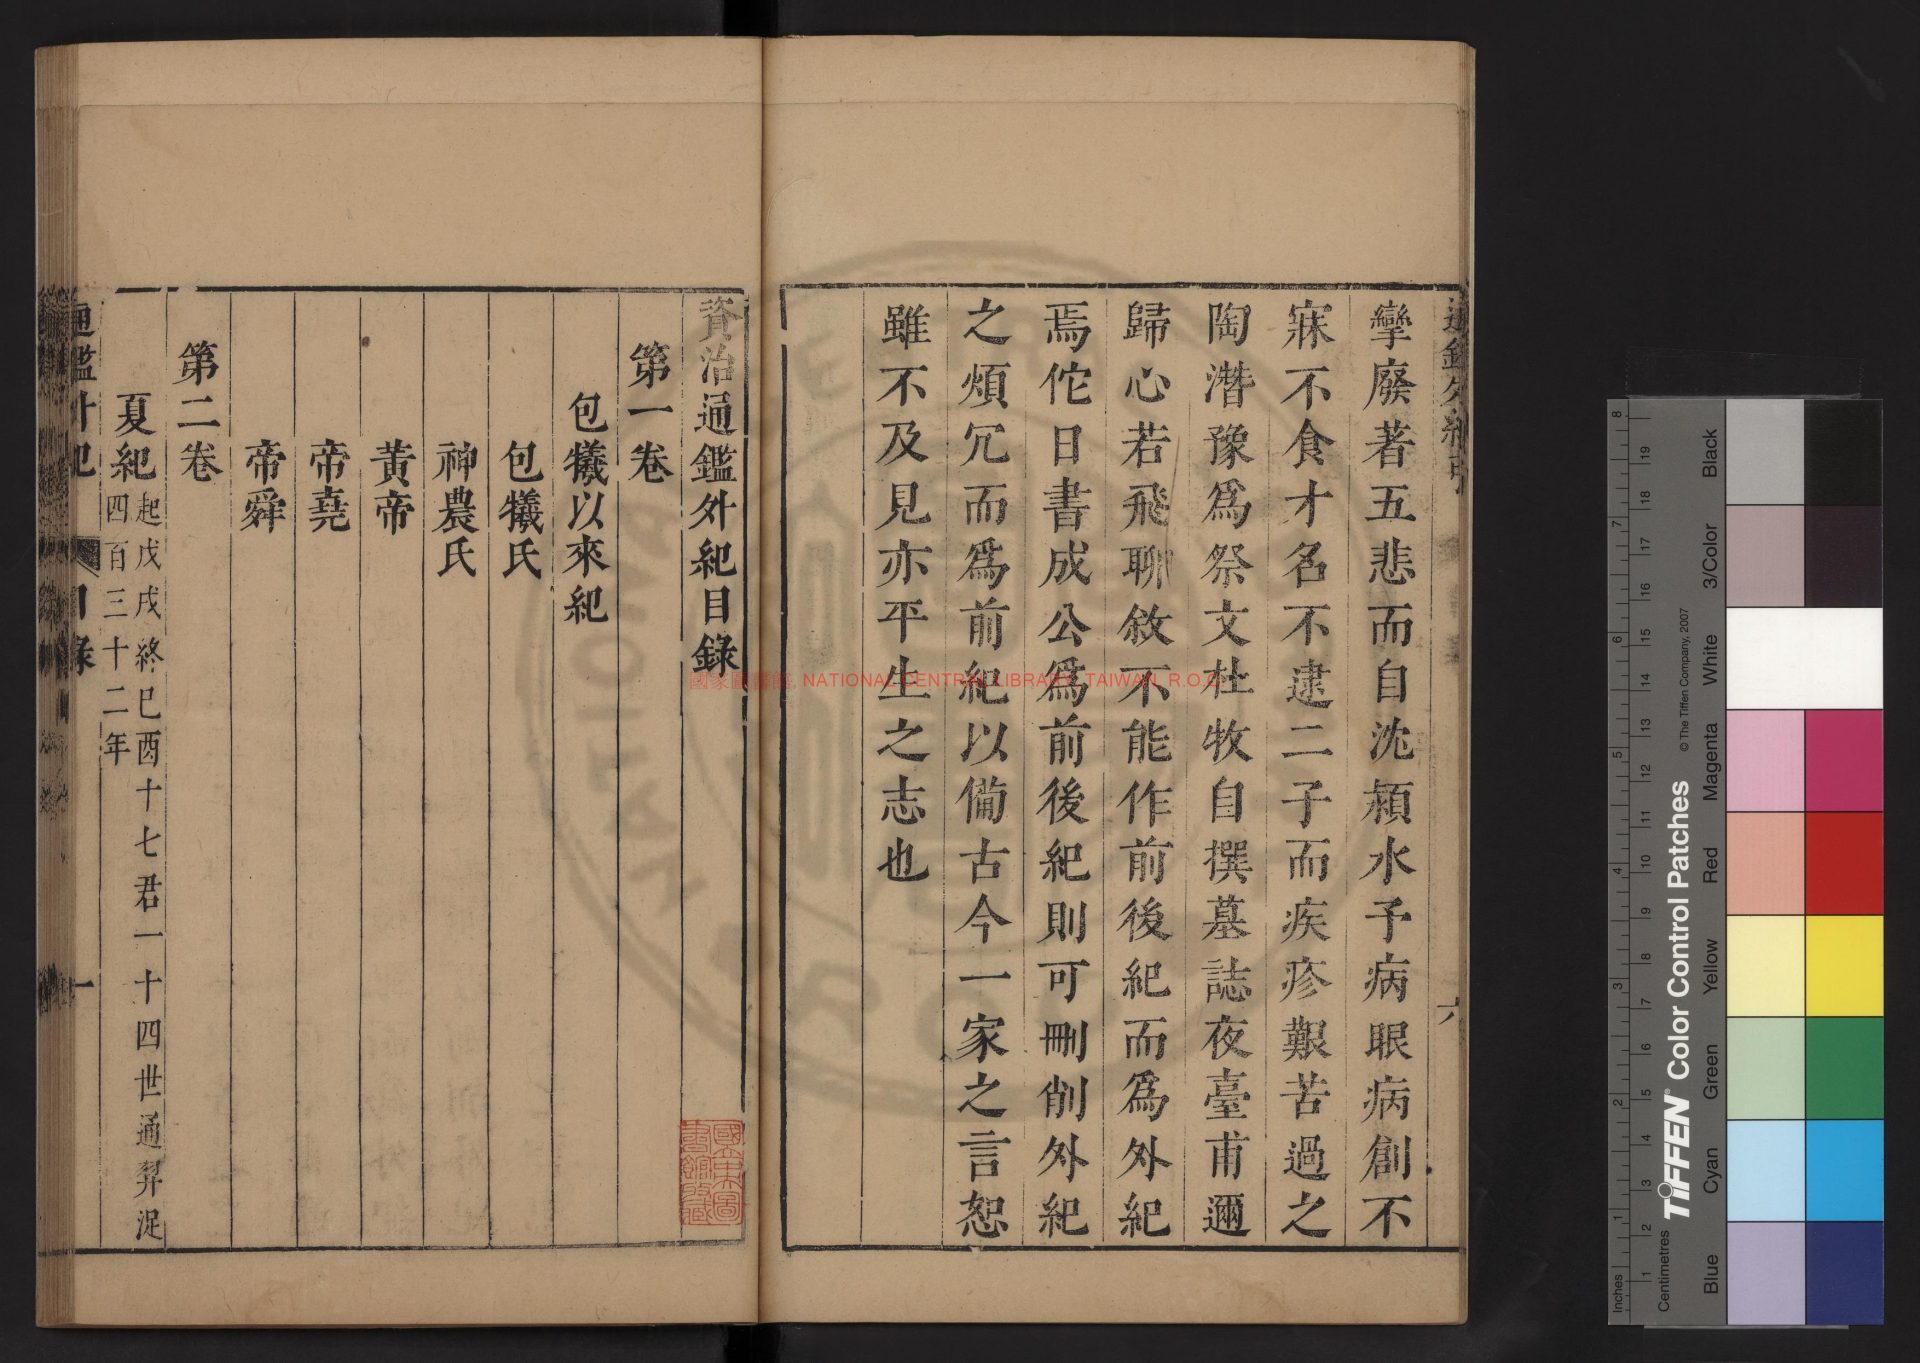 攣廢著五悲而自沈潁水予病眼病創不
寐不食才名不逮二子而疾疹艱苦過之
陶潛豫爲祭文杜牧自撰墓誌夜臺甫邇
歸心若飛聊敘不能作前後紀而爲外紀
焉佗日書成公爲前後紀則可刪削外紀
之煩冗而爲前紀以備古今一家之言恕
雖不及見亦平生之志也
六
資治通鑑外紀目錄
第一卷
包犧以來紀
包犧氏
神農氏
黃帝
帝堯
帝舜
第二卷
夏紀起戊戌終巳酉十七君一十四世通羿浞
四百三十二年
通鑑外紀
目錄
一
國家圖書館 NATIONAL CENTRAL LIBRARY, TAIWAN, R.O.C
國家圖書館藏
Inches
Centimetres
TIFFEN Color Control Patches
© The Tiffen Company, 2007
Blue
Cyan
Green
Yellow
Red
Magenta
White
3/Color
Black
1 2 3 4 5 6 7 8
1 2 3 4 5 6 7 8 9 10 11 12 13 14 15 16 17 18 19